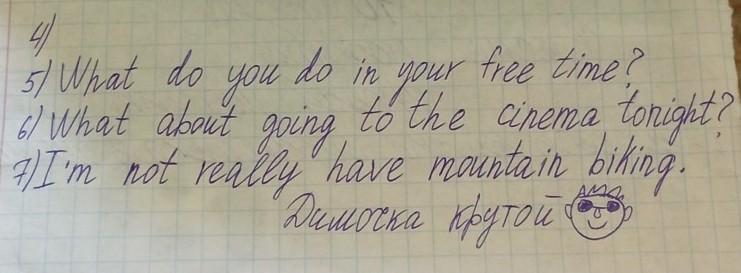 4)
5) What do you do in your free time?
6) What about going to the cinema tonight?
7) I'm not really have mountain biking.
Димочка крутой